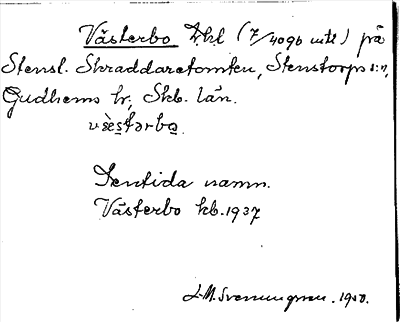 Västerbo lkl (7/4096 mtl) på
Stensl. Skraddaretomten, Stenstorps s:n,
Gudhems hr, Skb. län.
vèstərbo.
Sentida namn.
Västerbo kb. 1937
J. M. Svenungsson. 1950.